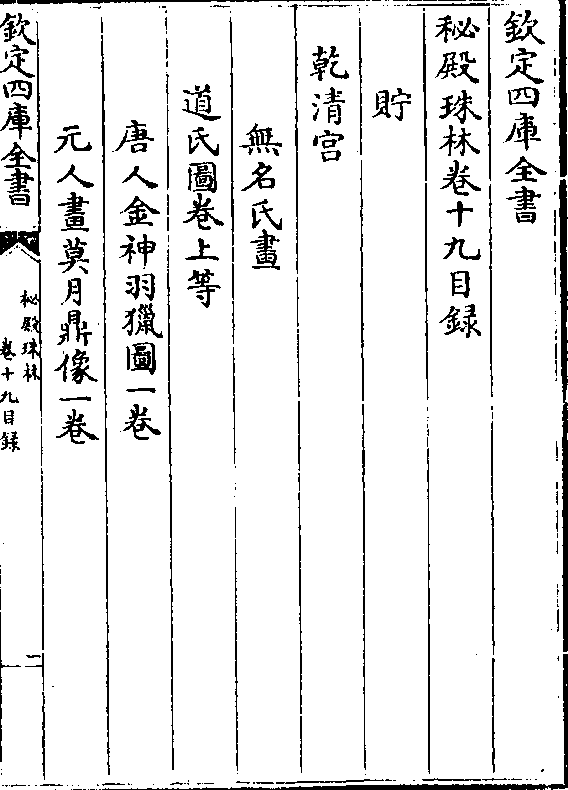 欽定四庫全書
秘殿珠林卷十九目録
貯
乾清宫
無名氏畫
道氏圖卷上等
唐人金神羽獵圖一卷
元人畫莫月鼎像一卷
欽定四庫全書
秘殿珠林
卷十九目録
一